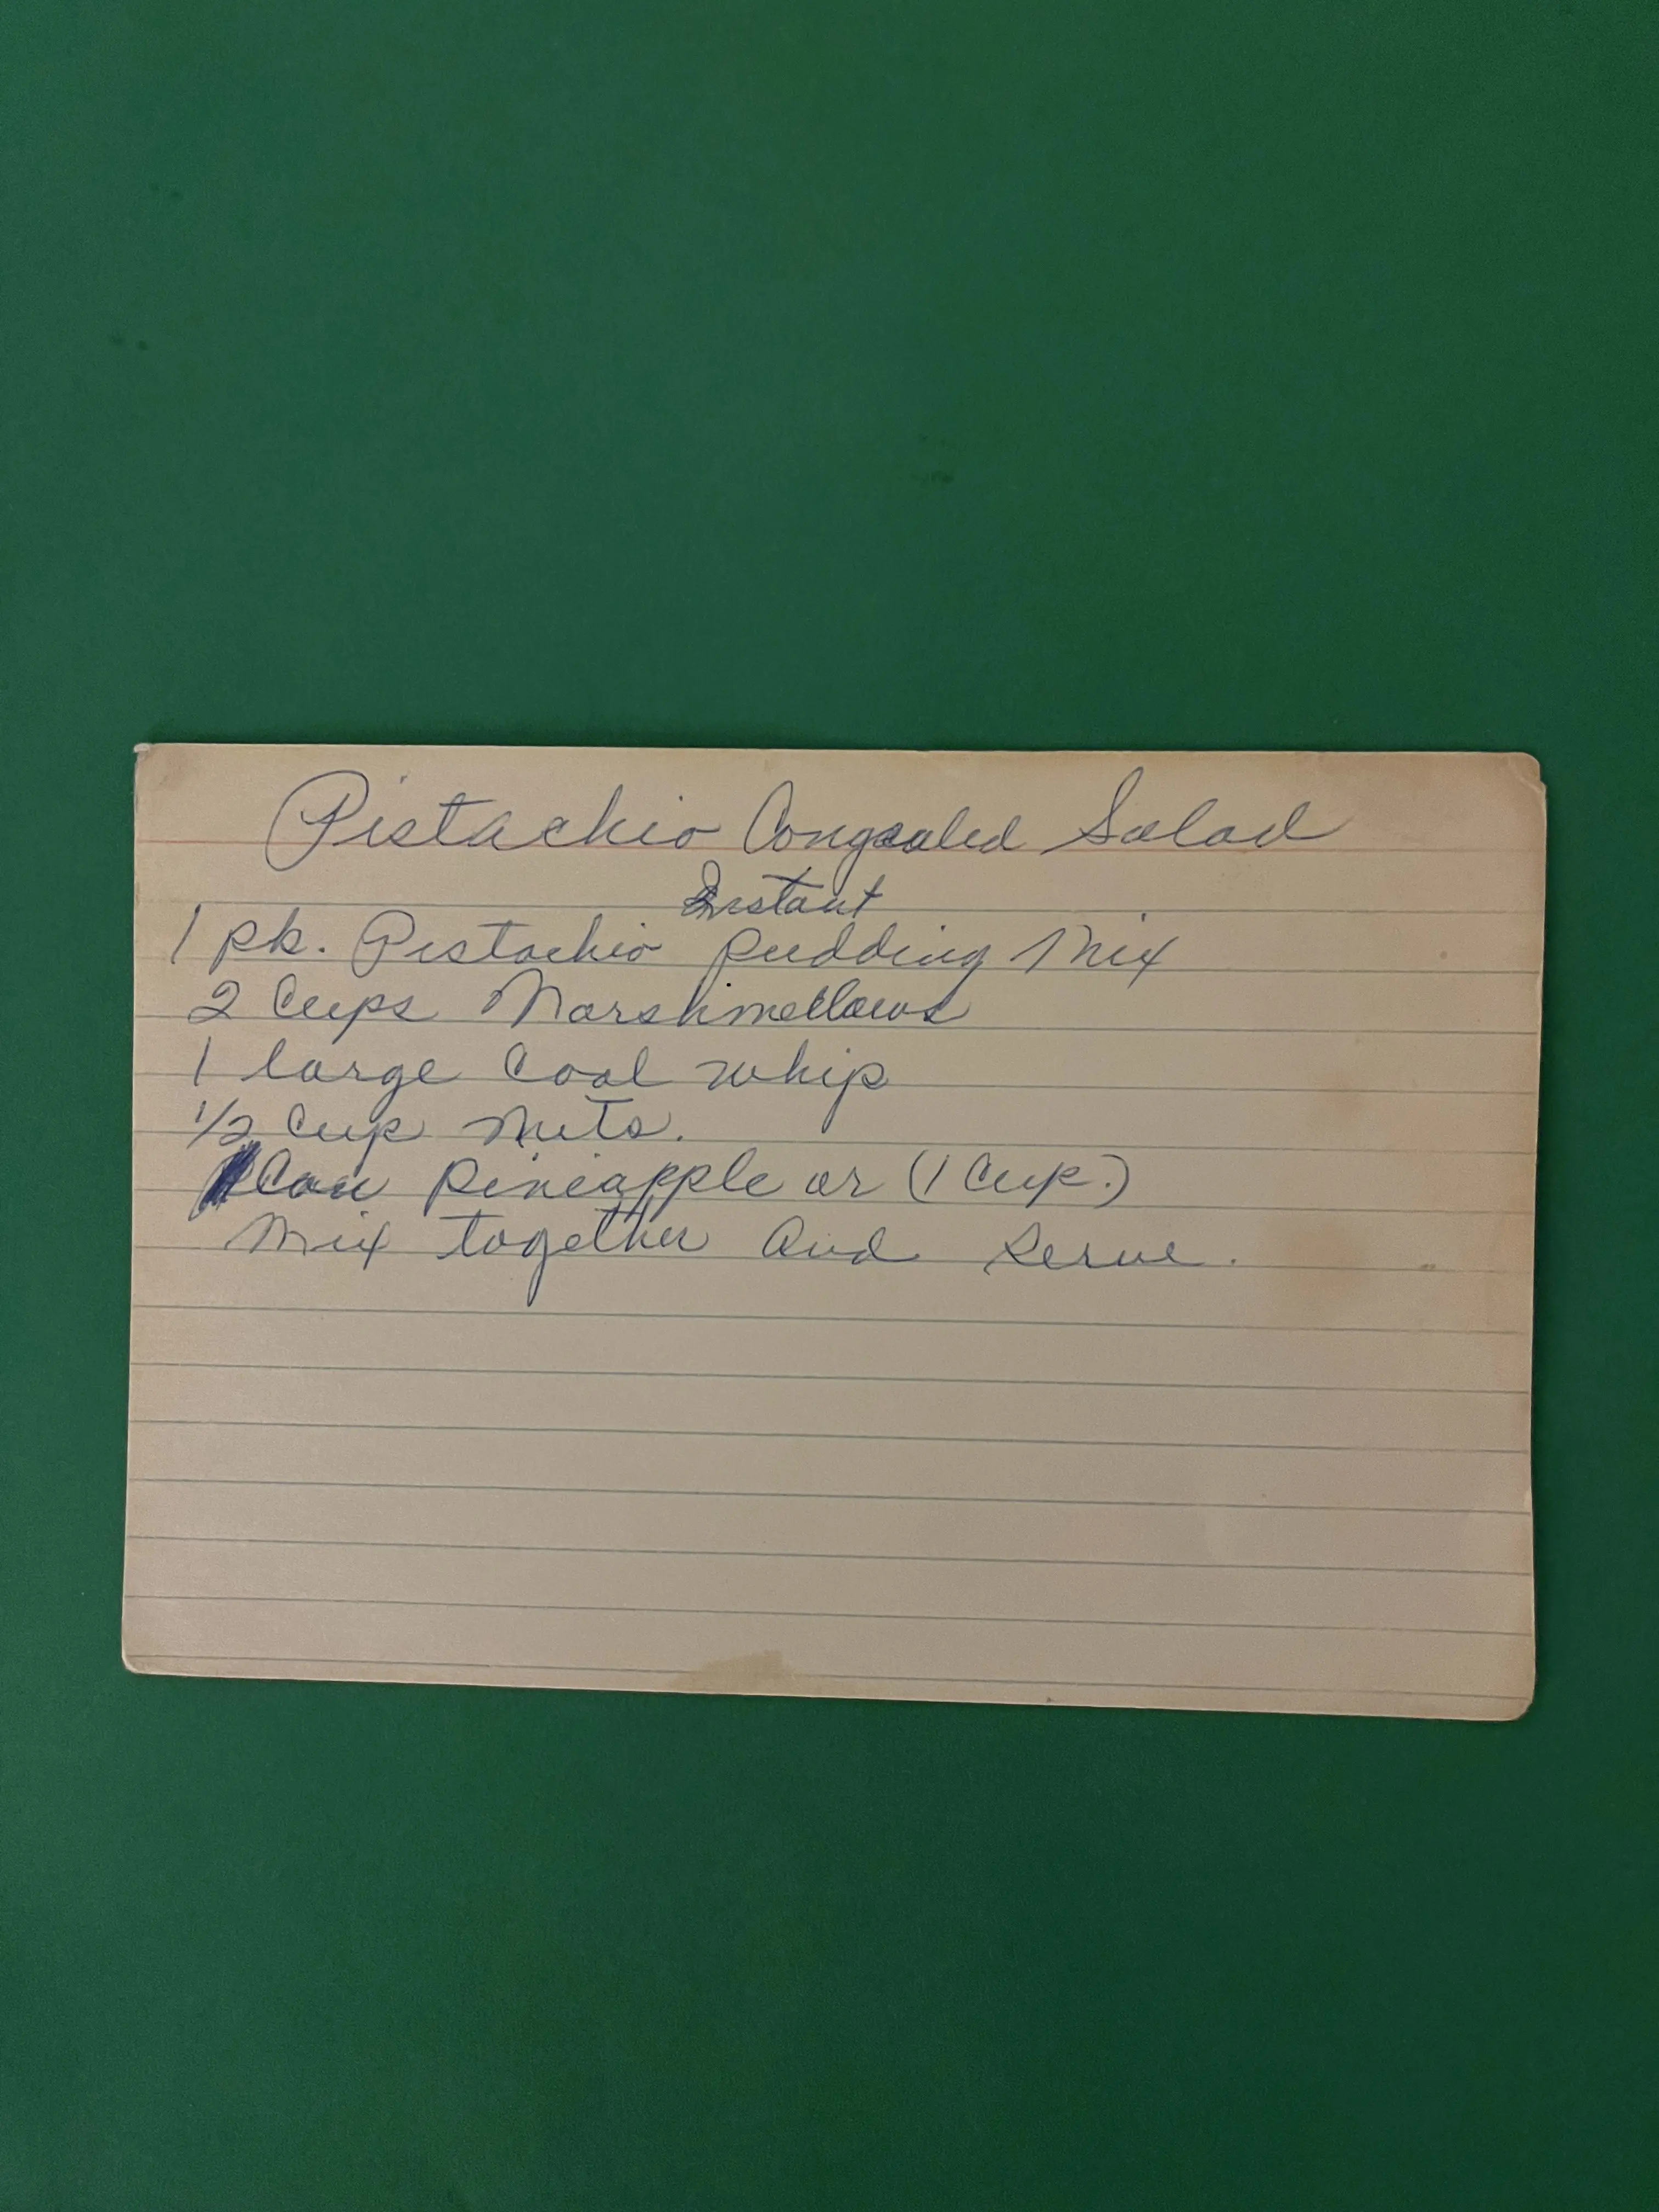 Pistachio Congealed Salad
Instant
1 pk. Pistachio pudding Mix
2 Cups Marshmellows
1 large Cool whip
1/2 Cup nuts.
Can pineapple or (1 Cup.)
Mix together and serve.